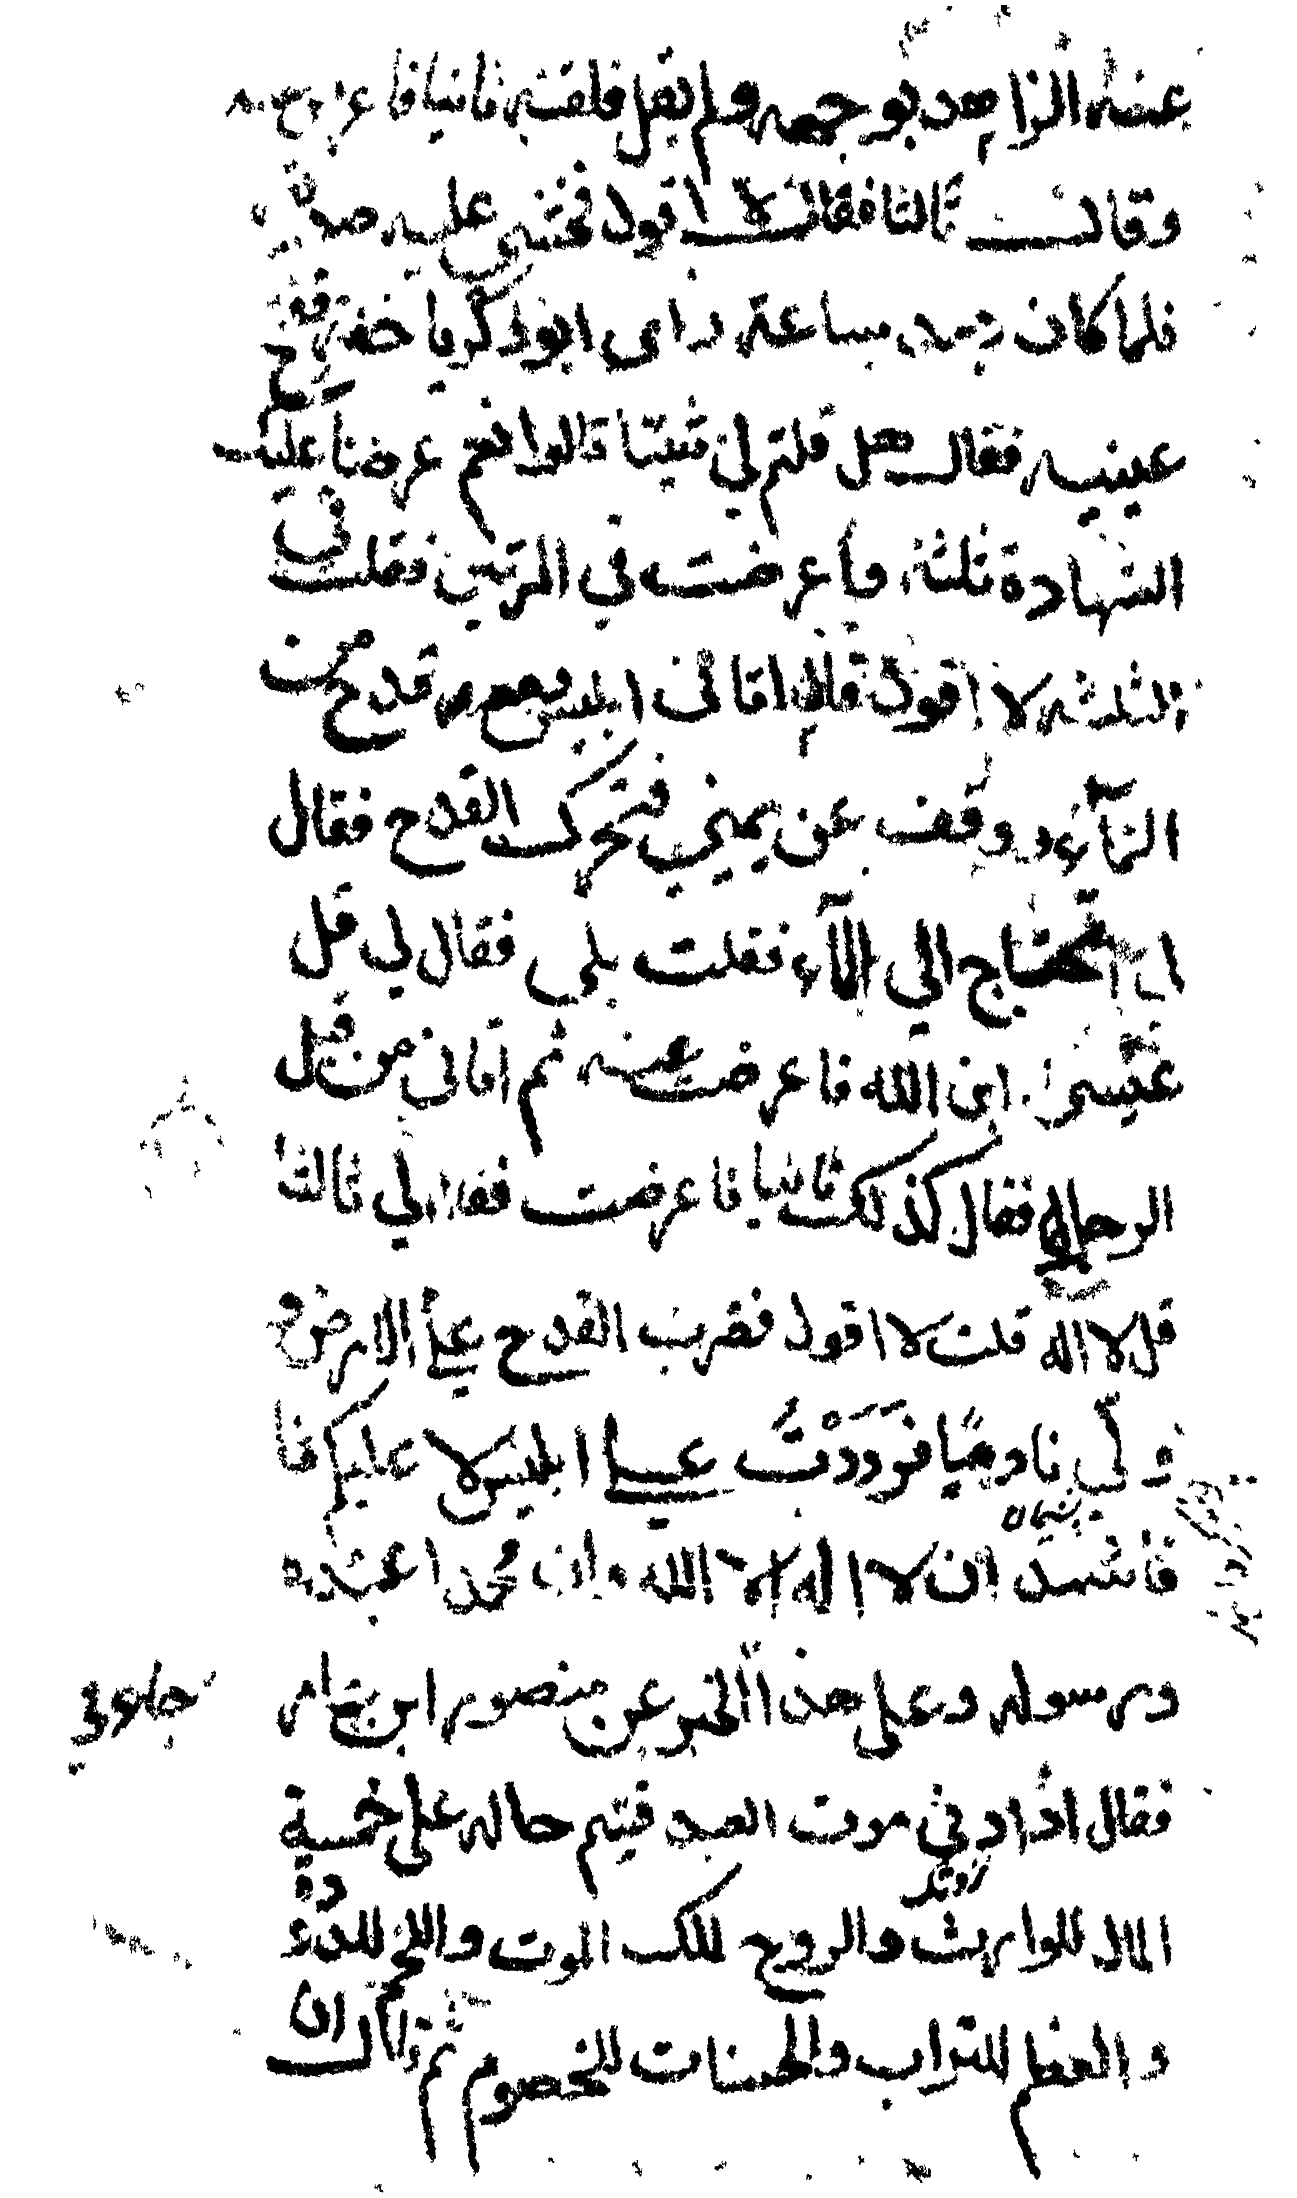 عنه الزاهد بوجهه ولم يقل فلقنه ثانيا فاعرض عنه
وقال ثالثا فقال لا اقول فخشي عليه صديقه
فلما كان بعد ساعة راى ابو زكريا خفة ففتح
عينيه فقال هل قلتم لي شيئا قالوا نعم عرضنا عليك
الشهادة ثلثة فاعرضت في المرتين فقلت في
الثلثه لا اقول قال اتاني ابليس ومعه قدح من
المآء ووقف عن يميني فتحرك القدح فقال
لي اتحتاج الي المآء فقلت بلى فقال لي قل
عيسى ابن الله فاعرضت عنه ثم اتاني من قبل
الرجل فقال كذلك ثانيا فاعرضت فقال لي ثالثا
قل لا اله قلت لا اقول فضرب القدح على الارض و
ولي هاربا فرددت على ابليس لا عليكم فا
فاشهد ان لا اله الا الله وان محمدا عبده
ورسوله وعلى هذا الخبر عن منصور ابن عمار
فقال اذا دني موت العبد قسم حاله على خمسة
المال للوارث والروح لملك الموت واللحم للدوده
والعظم للتراب والحسنات للخصوم ثم قال ان